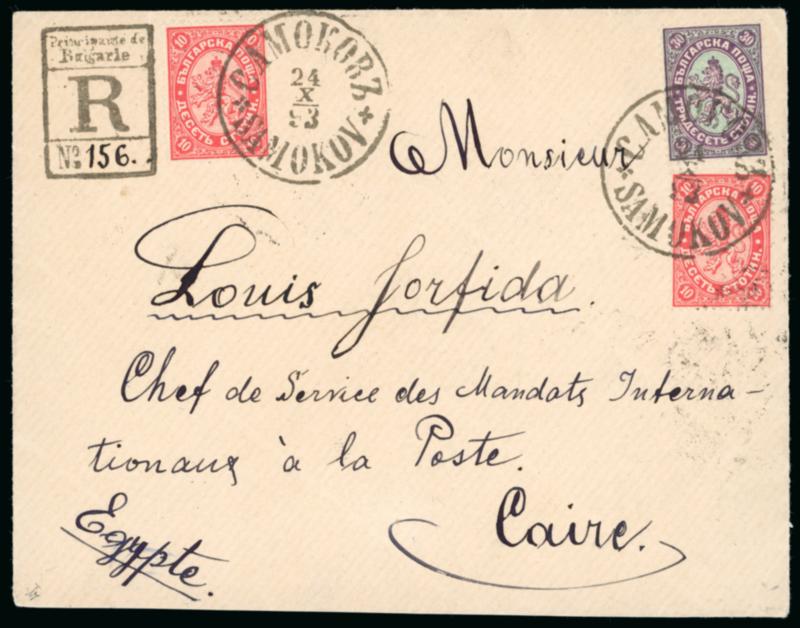 Principauté de
Bulgarie
R
№ 156.
10
БЪЛГАРСКА ПОЩА
ДЕСЕТЬ СТОТИН.
10
САМОКОВЪ
24
X
93
SAMOKOV
30 30
БЪЛГАРСКА ПОЩА
ТРИДЕСЕТЬ СТОТИН.
SAMOKOV
10
БЪЛГАРСКА ПОЩА
ДЕСЕТЬ СТОТИН.
10 10
Monsieur
Louis Jorfida.
Chef de Service des Mandats Interna-
tionaux à la Poste.
Caire.
Egypte.